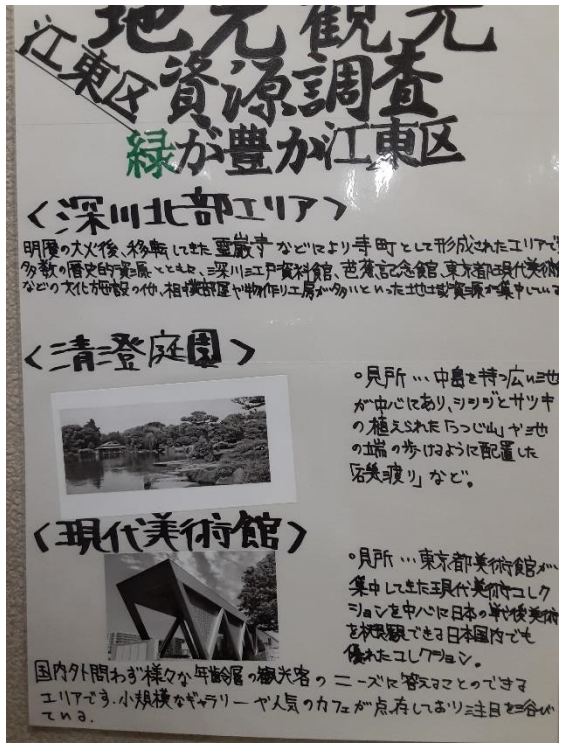 地元観光
江東区
資源調査
緑が豊か江東区
<深川北部エリア>
明暦の大火後、移転してきた霊巌寺などにより寺町として形成されたエリアで
多数の歴史的資源とともに、深川江戸資料館、芭蕉記念館、東京都現代美術
などの文化施設の他、相撲部屋や物作り工房が多いといった地域資源が集中している
<清澄庭園>
○見所…中島を持つ広い池
が中心にあり、ツツジとサツキ
の植えられた「つつじ山」や池
の端の歩けるように配置した
「磯渡り」など。
<現代美術館>
○見所…東京都美術館が
集中してきた現代美術コレク
ションを中心に日本の戦後美術
を概観できる日本国内でも
優れたコレクション。
国内外問わず様々な年齢層の観光客のニーズに答えることのできる
エリアです。小規模なギャラリーや人気のカフェが点在しており注目を浴び
ている.